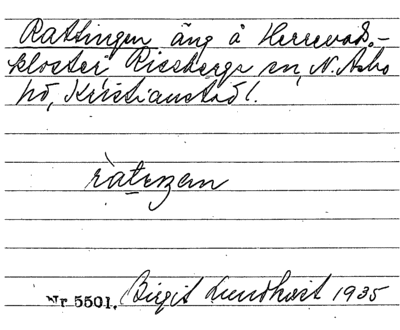 Rattingen äng å Herrevads-
kloster, Riseberga sn, N. Åsbo
hd, Kristianstad l.
ràteŋen
Nr 5501. Birgit Lundkvist 1935